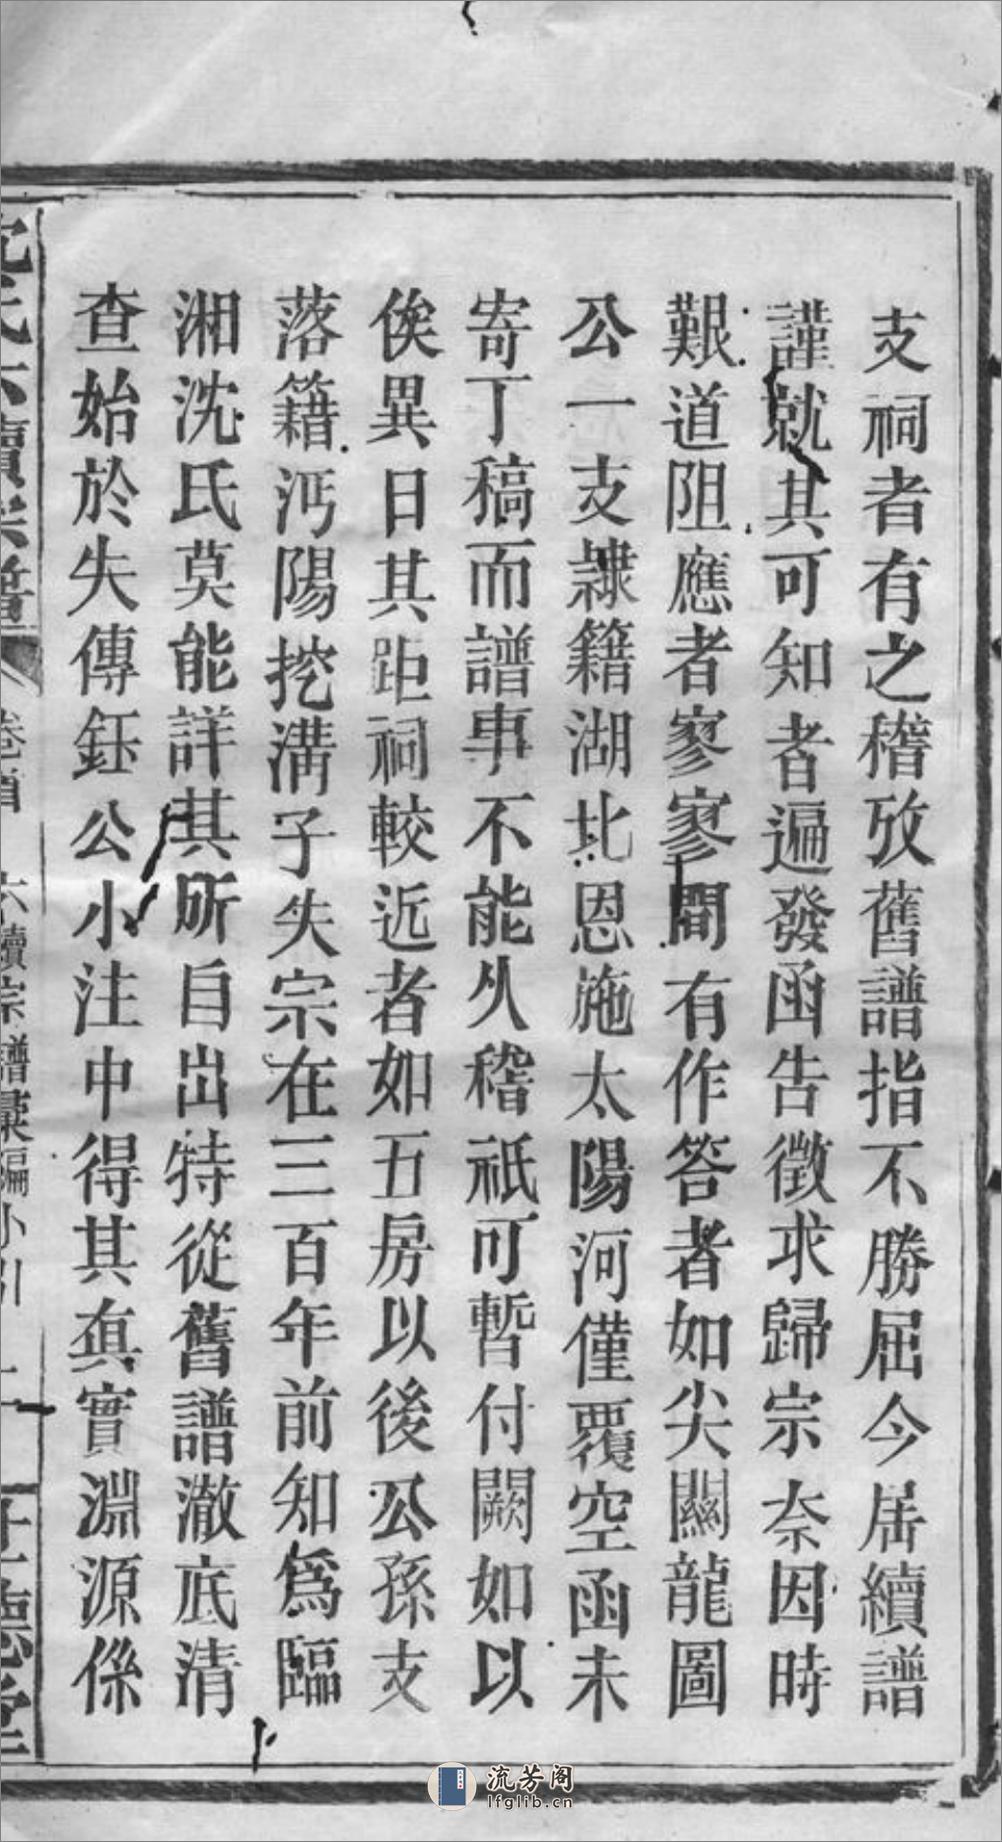 支祠者有之稽攷舊譜指不勝屈今居續譜
謹就其可知者遍發函告徵求歸宗奈因時
艱道阻應者寥寥間有作答者如尖關龍圖
公一支隸籍湖北恩施太陽河僅覆空函未
寄丁稿而譜事不能久稽祇可暫付闕如以
俟異日其距祠較近者如五房以後公孫支
落籍沔陽挖溝子失宗在三百年前知為臨
湘沈氏莫能詳其所自出特從舊譜澈底清
查始於失傳鈺公小注中得其真實淵源係
沈氏六續宗譜 卷首 六續宗譜彙編小引
流芳阁
lfglib.cn